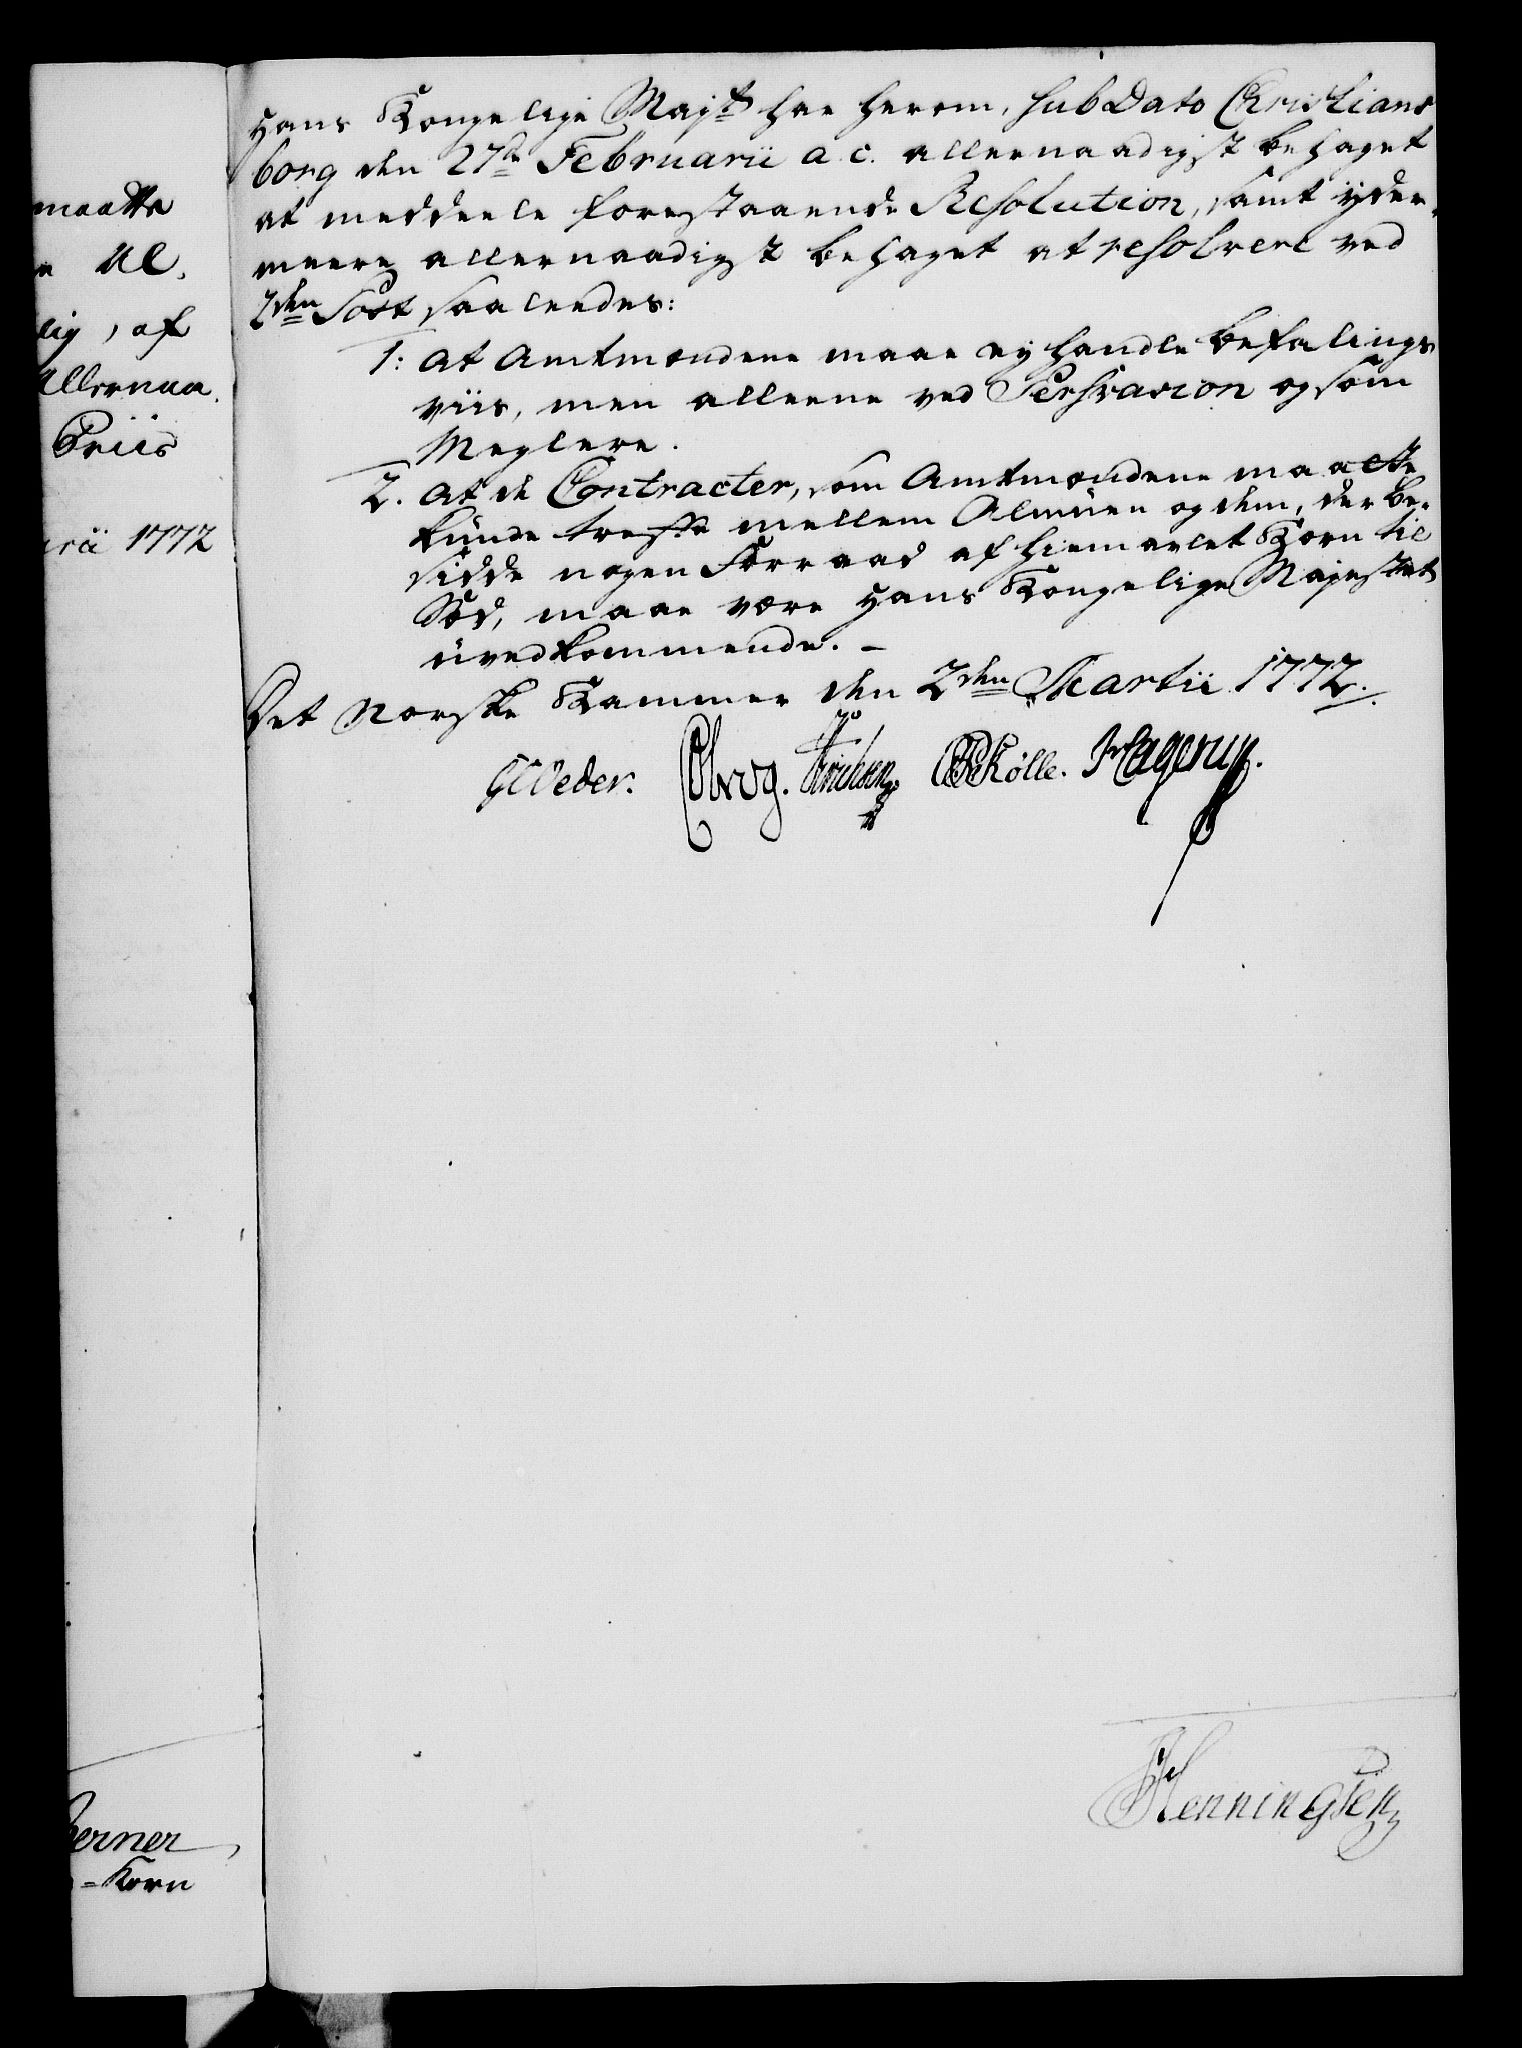 maatte
Al,
lig, af
Allernaa
Priis
1772
erner
Korn
Hans Kongelige Mayt har herom, sub Dato Christians
borg den 27de Februarii a. c. allernaadigst behaget
at meddeele forestaaende Resolution, samt ÿder,
meere allernaadigst behaget at resolvere ved
2den Post saaleedes:
1: At Amtmændene maae ey handle befalings
viis, men alleene ved Persvasion og som
Meglere.
2. At de Contracter, som Amtmændene maatte
kunde treffe mellem Almuen og dem, der be-
sidde nogen Forraad af hiemavlet Korn til
Sæd, maae være Hans Kongelige Majestæt
uvedkommende. -
Det Norske Kammer den 2den Martii 1772.
Erichsen Kølle. Hagerup.
Henningsen